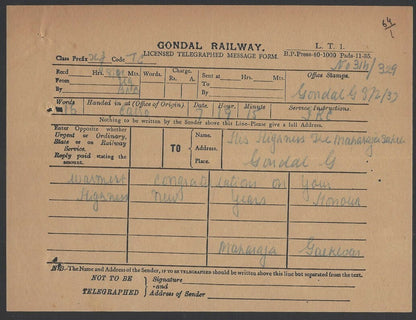 GONDAL RAILWAY.
LICENSED TELEGRAPHED MESSAGE FORM.
L. T. 1.
B.P.-Press-40-1000 Pads-11-35.
Class Prefix Code
Recd Hrs. Mts. Words.
Charge.
Rs. A.
Sent Hrs. Mts.
No 314/329
Office Stamps.
From
By
To
By
Gondal G 2/2/37
Words Handed in at (Office of Origin). Date. Hour. Minute Service Instructions.
Nothing to be written by the Sender above this Line-Please give a full Address.
Enter Opposite whether
Urgent or Ordinary.
State or on Railway
Service.
Reply paid stating the
amount.
TO
Name,
Address,
Place.
His Highness The Maharaja Saheb
Gondal G
Warmest Congratulations on Your
Highness New Years Honour
Maharaja Gaekevar
N.B.-The Name and Address of the Sender, IF TO BE TELEGRAPHED should be written above this line but separated from the text.
NOT TO BE
TELEGRAPHED
Signature
-and-
Address of Sender